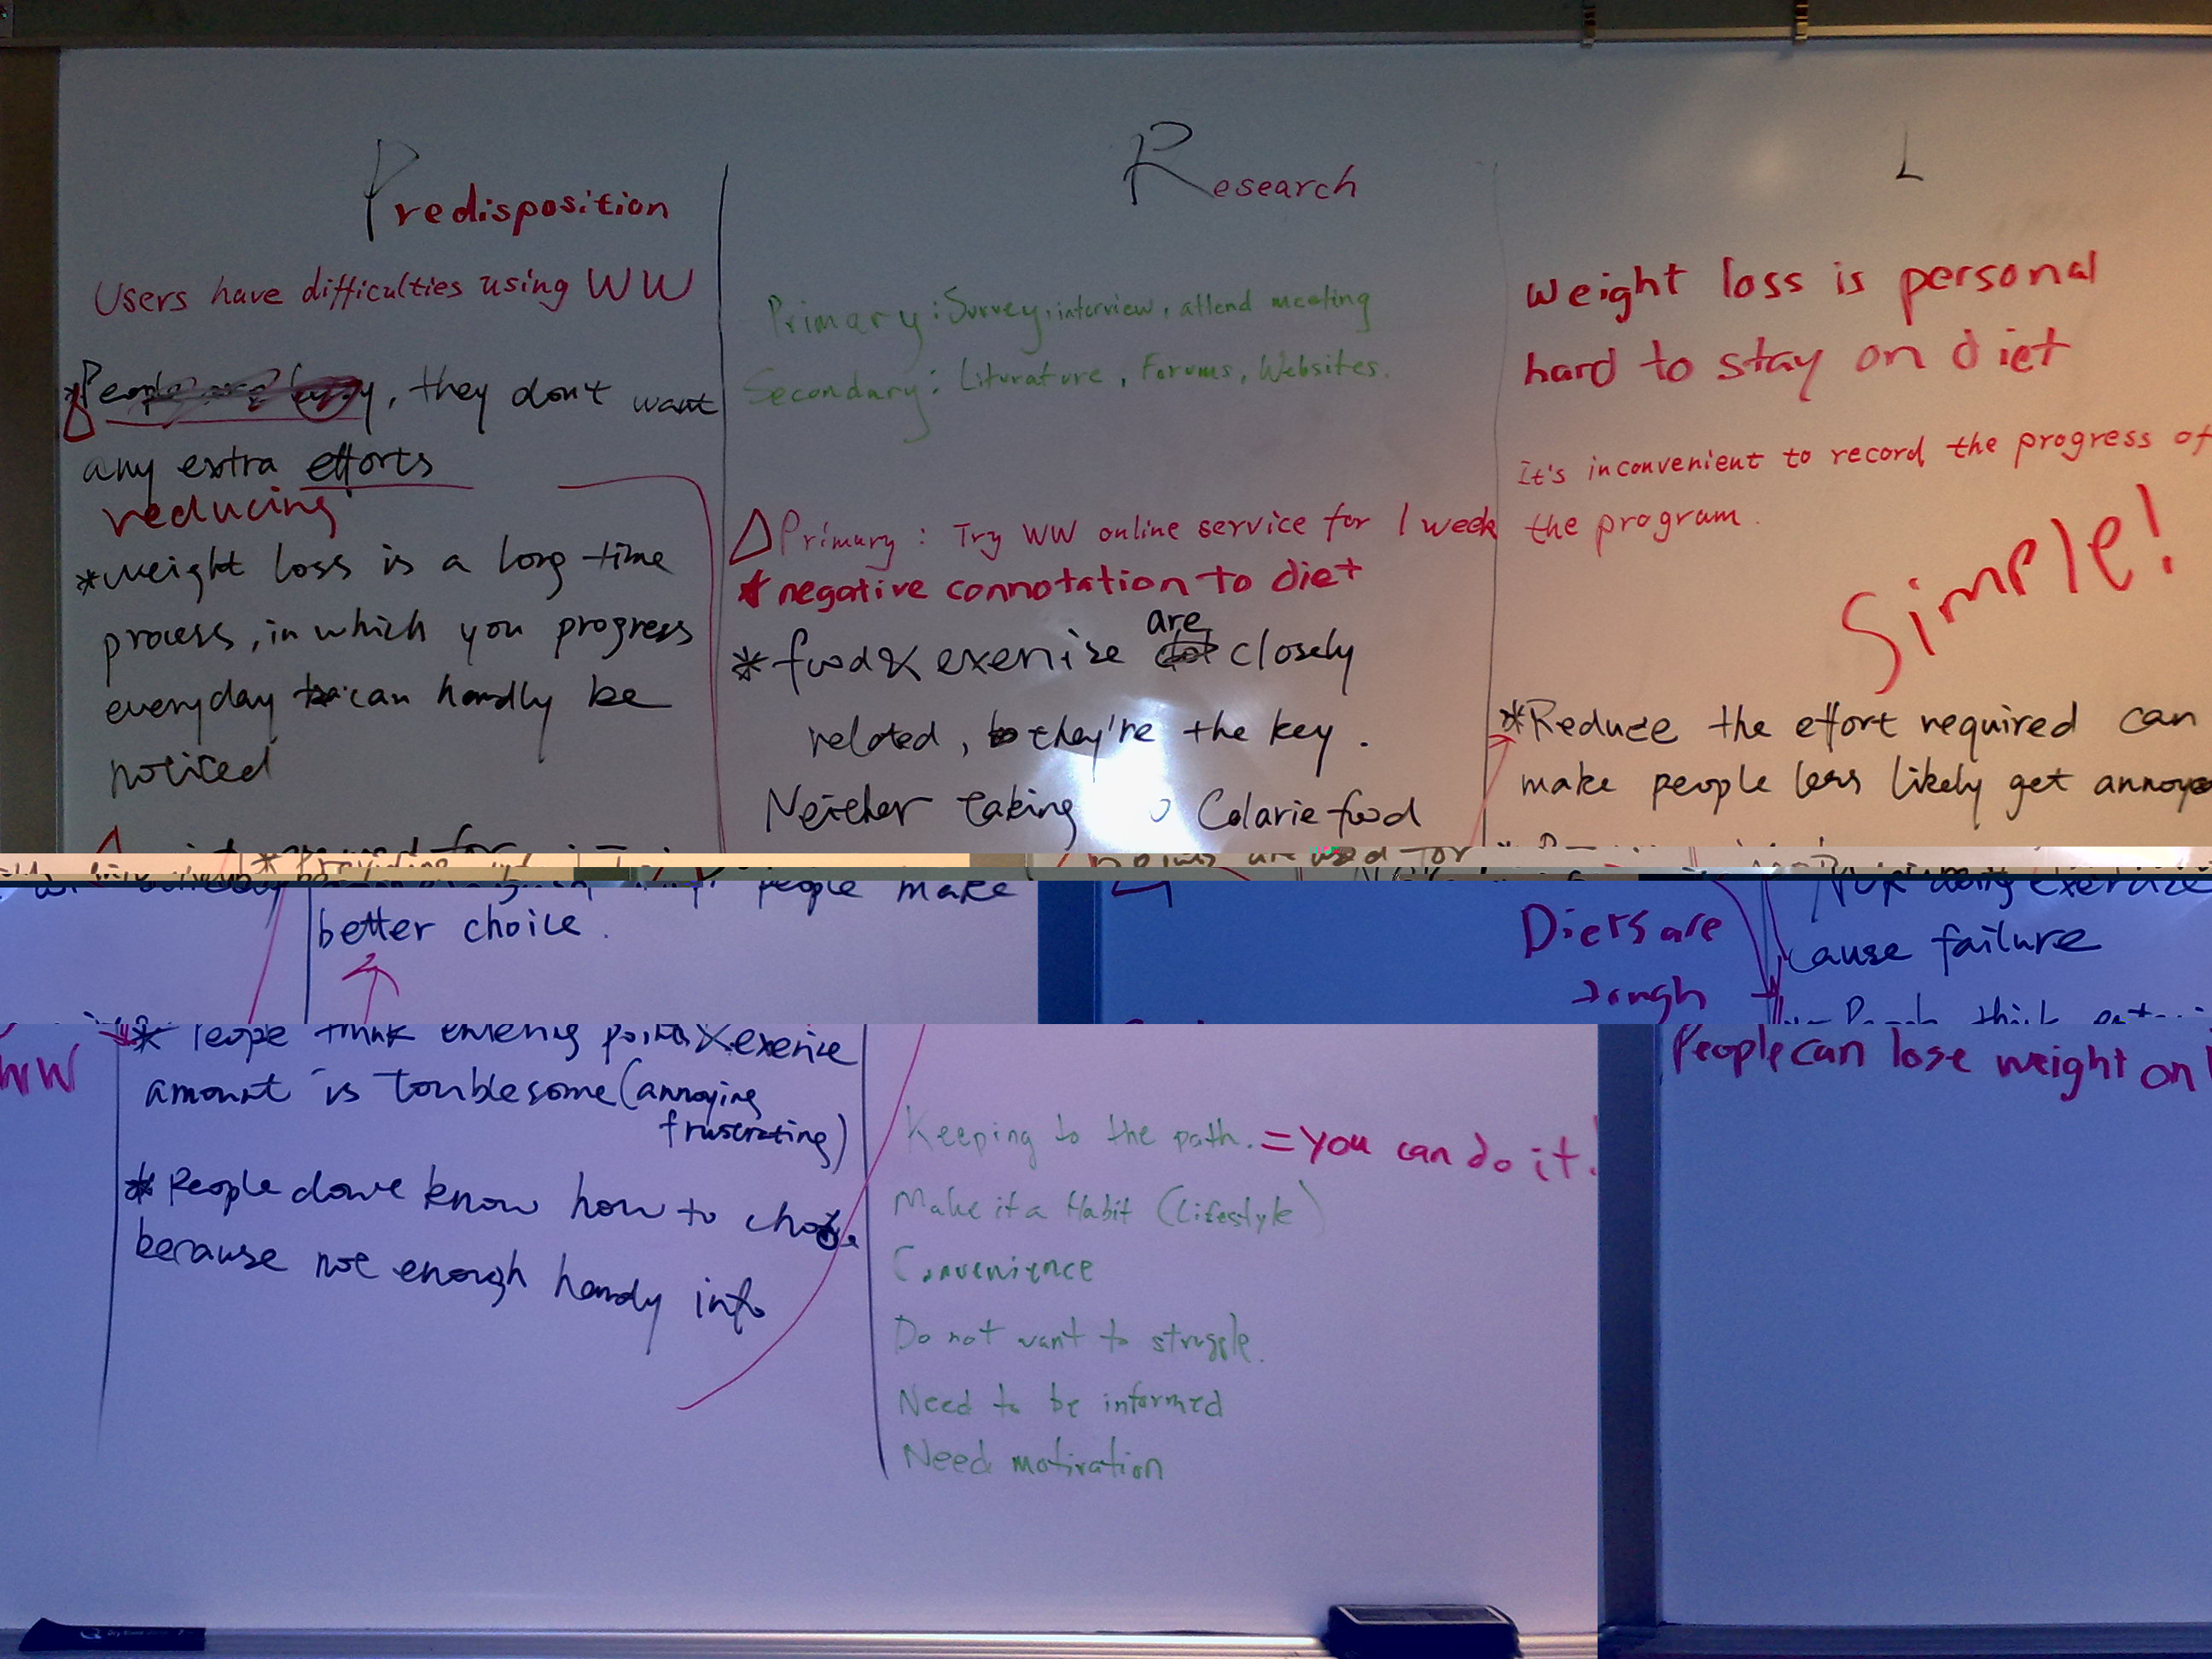 Predisposition
Users have difficulties using WW
*People are busy, they don't want
any extra efforts
reducing
*weight loss is a long-time
process, in which you progress
everyday can hardly be
noticed
Research
Primary: Survey, interview, attend meeting
Secondary: Literature, Forums, Websites.
△Primary: Try WW online service for 1 week
* negative connotation to diet
are
*food & exercise closely
related, they're the key.
Neither taking Calorie food
L
weight loss is personal
hard to stay on diet
It's inconvenient to record the progress of
the program.
Simple!
*Reduce the effort required can
make people less likely get annoy
for
Providing
people make
better choice.
Diets are
Nor doing exercise
cause failure
WW
* People think entering points & exercise
amount is toublesome (annoying
frustrating)
* People don't know how to choose
because not enough handy info
Keeping to the path. = you can do it!
Make it a Habit (Lifestyle)
Convenience
Do not want to struggle.
Need to be informed
Need motivation
People can lose weight on